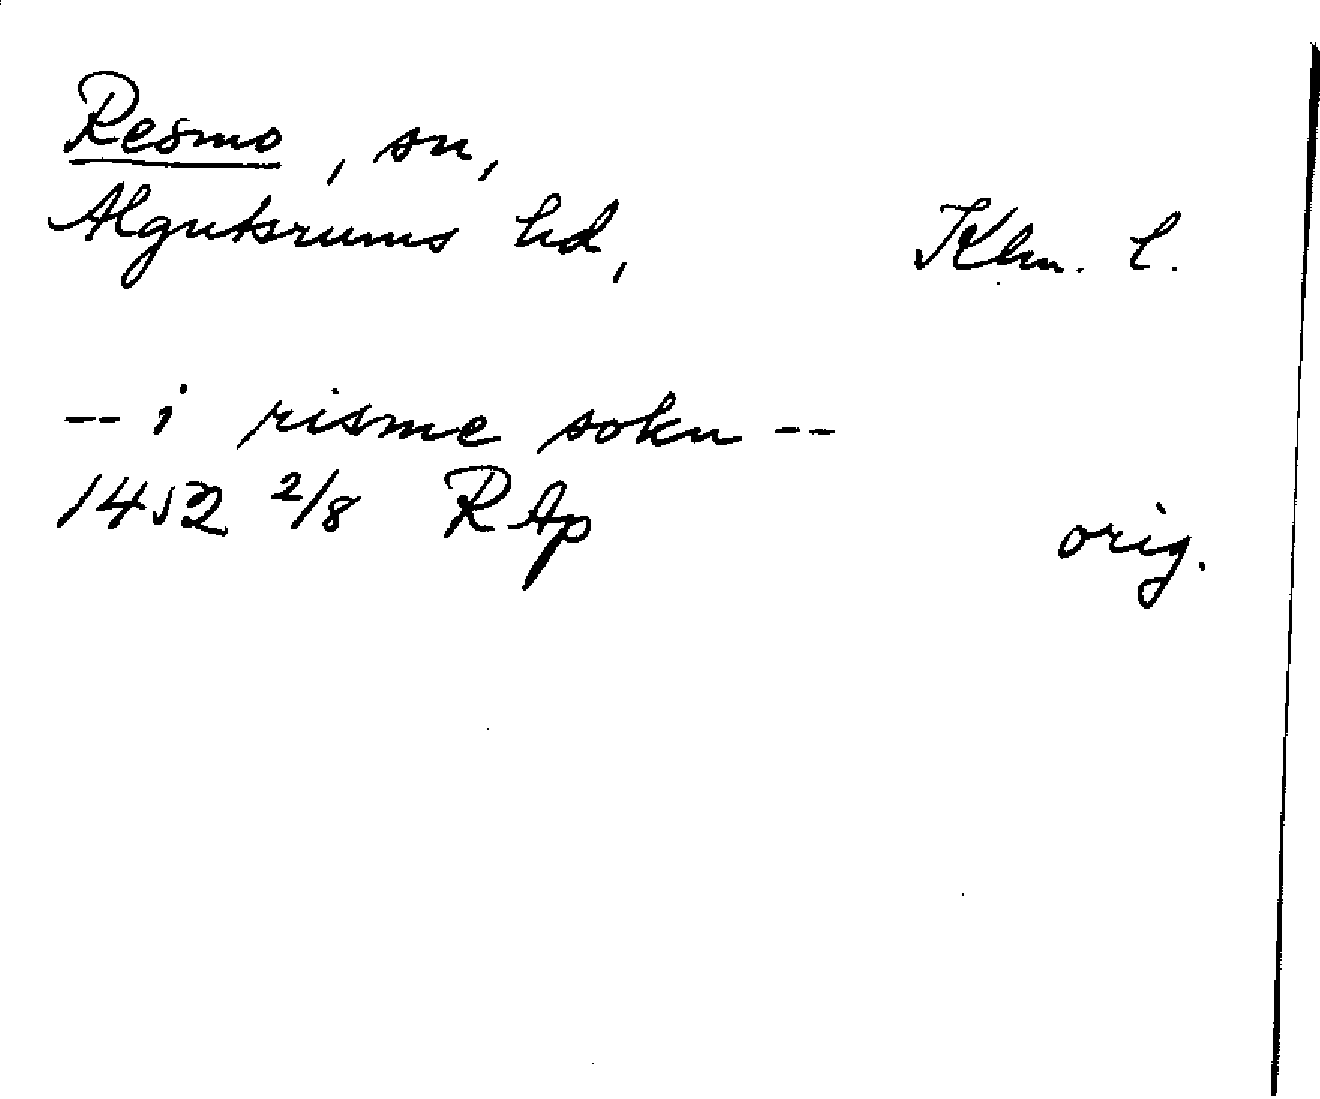 Resmo, sn,
Algutsrums hd, Klm. l.
-- i risme sokn --
1452 2/8 RAp orig.